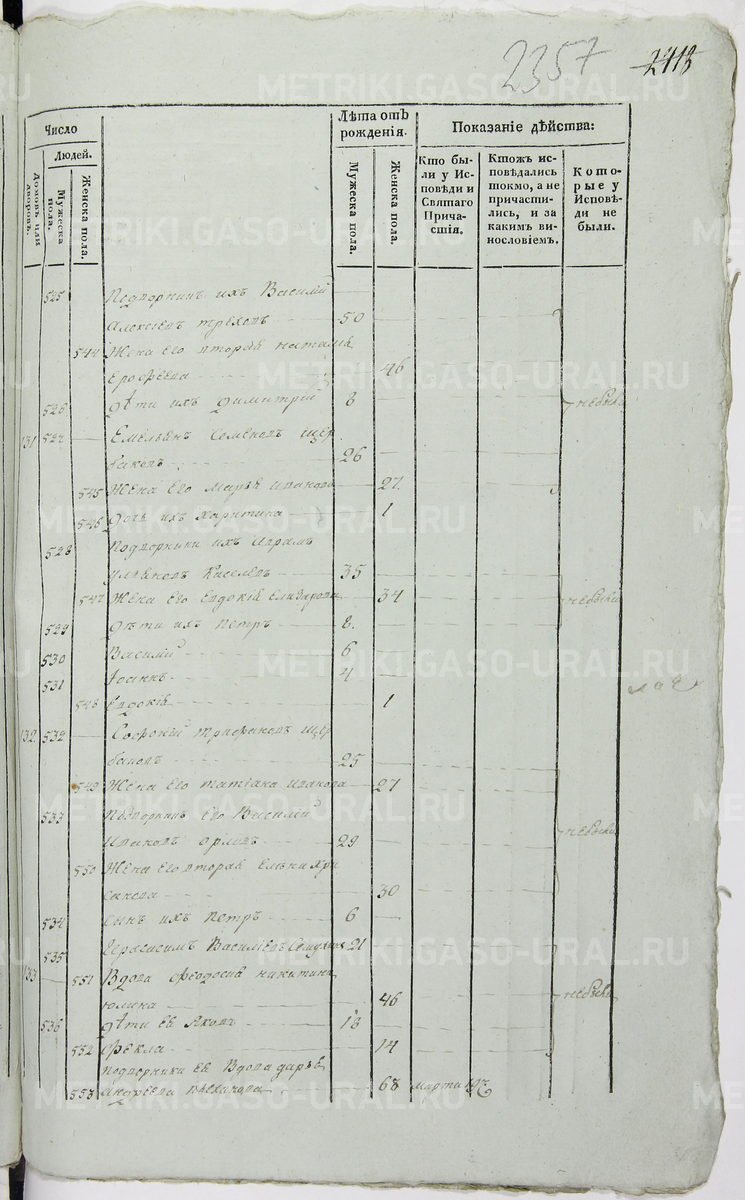 2357 2413
Число
Людей.
Домовъ или дворовъ.
Мужеска пола.
Женска пола.
Лѣта отъ рожденія.
Мужеска пола.
Женска пола.
Показаніе дѣйства:
Кто были у Исповѣди и Святаго Причастія.
Ктожъ исповѣдались токмо, а не причастились, и за какимъ винословіемъ.
Которые у Исповѣди не были.
525 Подворникъ ихъ Василій
Алексѣевъ 50
544 Жена его вторая наталія
Ерофѣева 46
526 дѣти ихъ димитрій 8 небыли
131 527 Емельянъ Семеновъ щер
баковъ 26
545 Жена его марья иванова 27
546 дочь ихъ харитина 1
528 Подворники ихъ Аврамъ
Киселевъ 35
547 Жена его Евдокія Елизарова 34 небыли
529 дѣти ихъ петръ 8.
530 Василій 6
531 Іоаннъ 4
548 Евдокія 1
132 532 трифановъ щер
баковъ 25
549 Жена его татіана иванова 27
533 Подворникъ его Василій
Ивановъ орловъ 29 небыли
550 Жена его вторая Елена хри
санова 30
534 сынъ ихъ петръ 6
535 Герасимъ Василіевъ 21
133 551 Вдова феодосія никитина
юлина 46 небыли
536 дѣти ея Яковъ 18
552 фекла 14
подворники ея Вдова дарья
553 андреева 68 марта
METRIKI.GASO-URAL.RU